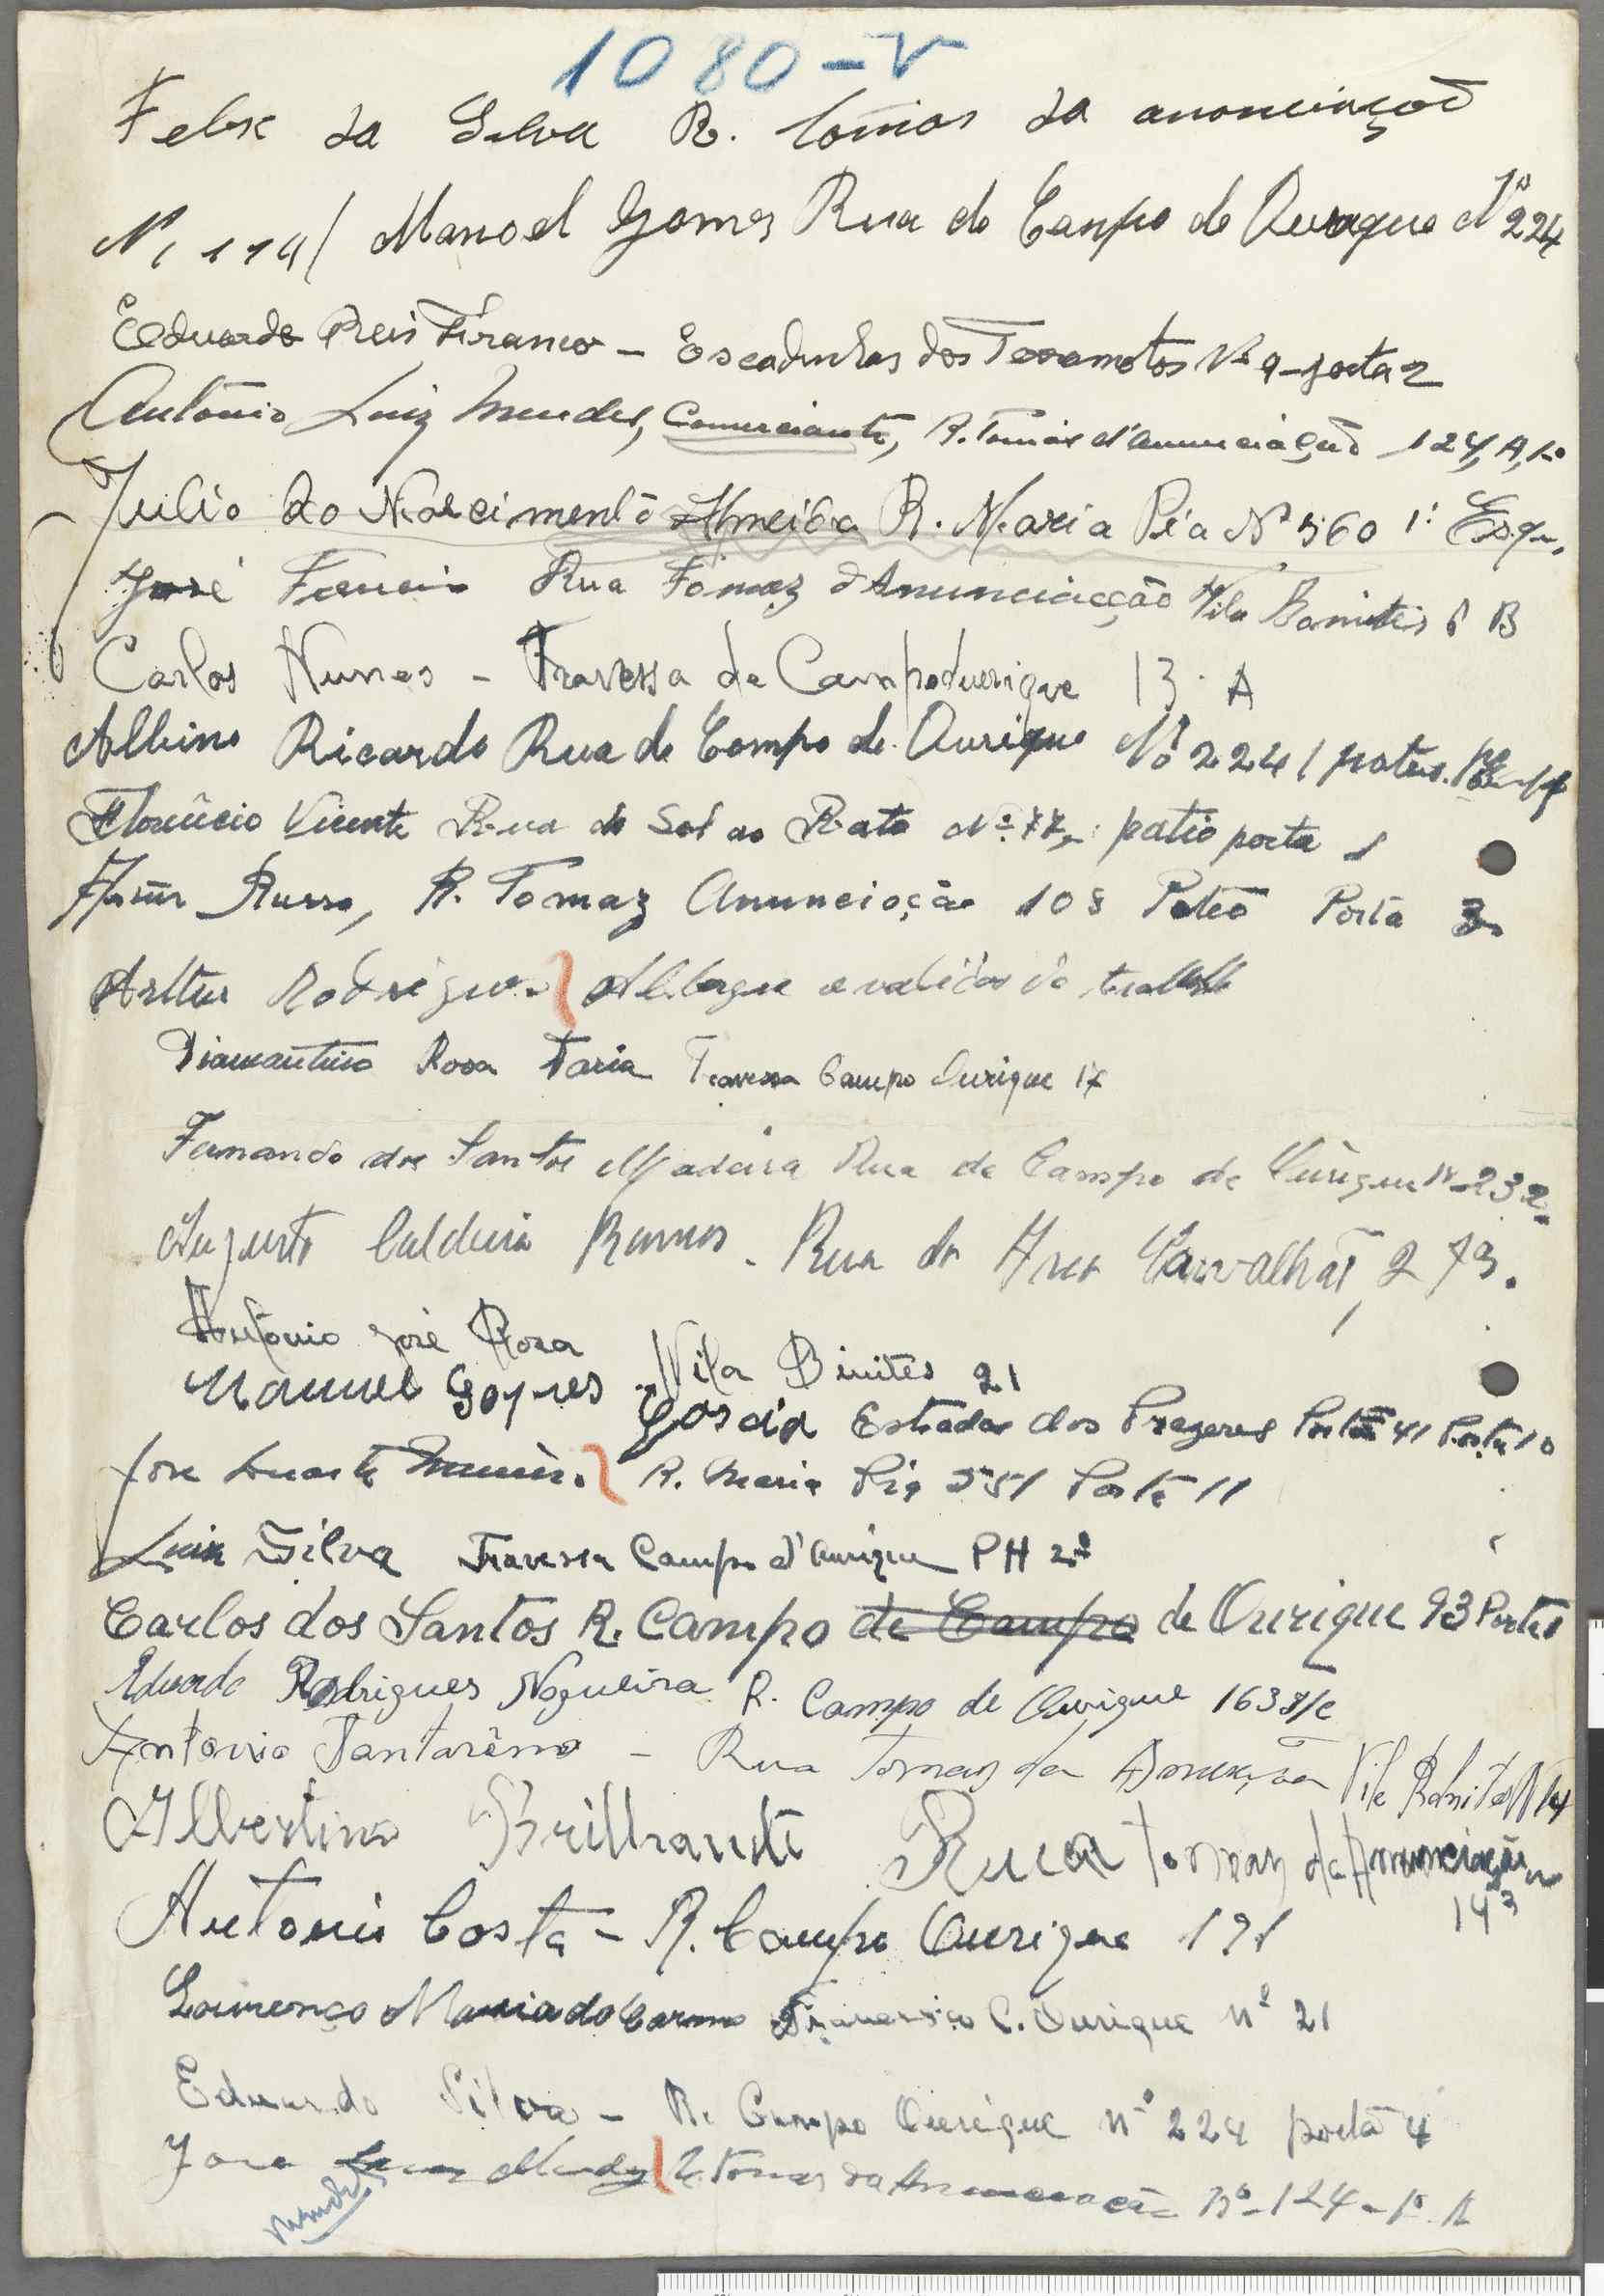 1080-V
Felex da Silva R. tomas da anonciaçaõ
Nº 114/ Manoel Gomes Rua de Canpo de Ourique Nº 224
Eduardo Reis Franco - Escadinhas dos Terramotos Nº 9-porta 2
António Luiz Mendes, Comerciante, R. Tomás d'Anunciação 124, A, 1º
Julio do Nascimento Almeida R. Maria Pia Nº 560 1º Esq.
José Rua Tomaz d'Anunciacção Vila Banitis 6 B
Carlos Nunes - Travessa de Campodurique 13-A
Albino Ricardo Rua de Compo de Ourique Nº 224 /
Florêncio Vicente Rua do Sol ao Rato Nº 77, patio porta 1
Russo, R. Tomaz Anunciação 108 Pateo Porta 3
Arltur Rodrigues Albergue da
Diamantino Rosa Faria Travessa Campo Ourique 17
Fernando dos Santos Madeira Rua de Campo de Ourique Nº 232
Augusto Caldeira Ramos - Rua do Arco Carvalhão, 273.
António José Rosa Vila Binites 21
Manuel Gomes Garcia Estradas dos Prazeres 41 Porta 10
Jose Duarte R. Maria Pia 551 Porta 11
Luiz Silva Travessa Campo d'Ourique PH 2º
Carlos dos Santos R. Campo de Campo de Ourique 93 Porta 1
Eduardo Rodrigues Nogueira R. Campo de Ourique 163 s/c
Antonio Santarêno - Rua Tomaz da Vila Benites Nº
Albertino Brilhante Rua tomaz da Anunciação
143
Antonio Costa - R. Campo Ourique 191
Lourenço Maria do Carmo Travessa C. Ourique nº 21
Eduardo Silva - R. Campo Ourique nº 224 porta 4
Jose Mendes R. Tomas da Anunciação Nº 124-1º A
Mendes